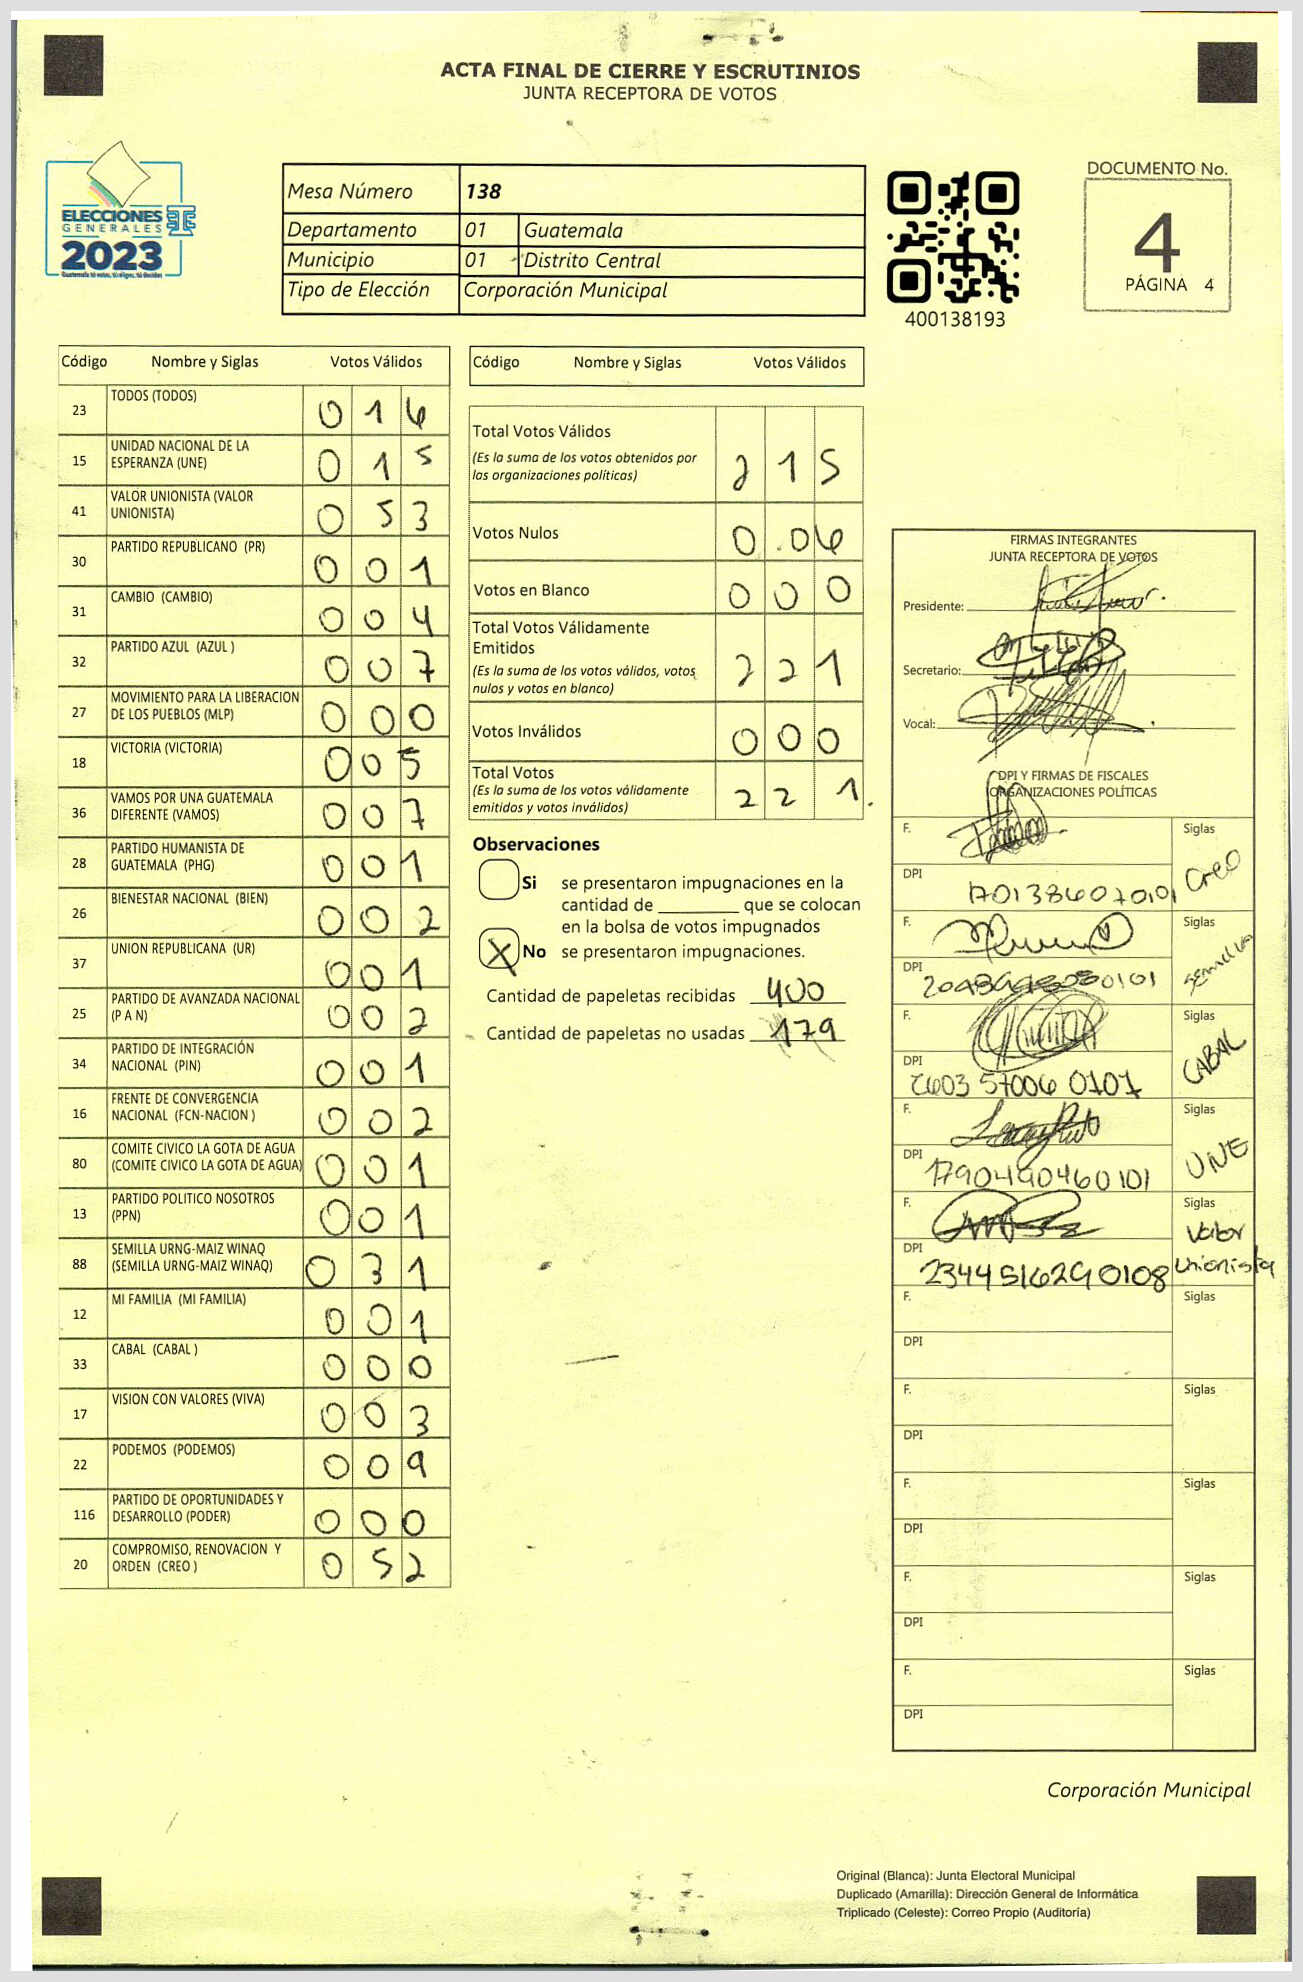 ACTA FINAL DE CIERRE Y ESCRUTINIOS
JUNTA RECEPTORA DE VOTOS
ELECCIONES
GENERALES
2023
Mesa Número 138
Departamento 01 Guatemala
Municipio 01 Distrito Central
Tipo de Elección Corporación Municipal
400138193
DOCUMENTO No.
4
PÁGINA 4
Código Nombre y Siglas Votos Válidos
23 TODOS (TODOS) 0 1 6
15 UNIDAD NACIONAL DE LA ESPERANZA (UNE) 0 1 5
41 VALOR UNIONISTA (VALOR UNIONISTA) 0 5 3
30 PARTIDO REPUBLICANO (PR) 0 0 1
31 CAMBIO (CAMBIO) 0 0 4
32 PARTIDO AZUL (AZUL ) 0 0 7
27 MOVIMIENTO PARA LA LIBERACION DE LOS PUEBLOS (MLP) 0 0 0
18 VICTORIA (VICTORIA) 0 0 5
36 VAMOS POR UNA GUATEMALA DIFERENTE (VAMOS) 0 0 7
28 PARTIDO HUMANISTA DE GUATEMALA (PHG) 0 0 1
26 BIENESTAR NACIONAL (BIEN) 0 0 2
37 UNION REPUBLICANA (UR) 0 0 1
25 PARTIDO DE AVANZADA NACIONAL (P A N) 0 0 2
34 PARTIDO DE INTEGRACIÓN NACIONAL (PIN) 0 0 1
16 FRENTE DE CONVERGENCIA NACIONAL (FCN-NACION ) 0 0 2
80 COMITE CIVICO LA GOTA DE AGUA (COMITE CIVICO LA GOTA DE AGUA) 0 0 1
13 PARTIDO POLITICO NOSOTROS (PPN) 0 0 1
88 SEMILLA URNG-MAIZ WINAQ (SEMILLA URNG-MAIZ WINAQ) 0 3 1
12 MI FAMILIA (MI FAMILIA) 0 0 1
33 CABAL (CABAL ) 0 0 0
17 VISION CON VALORES (VIVA) 0 0 3
22 PODEMOS (PODEMOS) 0 0 9
116 PARTIDO DE OPORTUNIDADES Y DESARROLLO (PODER) 0 0 0
20 COMPROMISO, RENOVACION Y ORDEN (CREO ) 0 5 2
Código Nombre y Siglas Votos Válidos
Total Votos Válidos
(Es la suma de los votos obtenidos por
las organizaciones políticas) 2 1 5
Votos Nulos 0 0 6
Votos en Blanco 0 0 0
Total Votos Válidamente
Emitidos
(Es la suma de los votos válidos, votos
nulos y votos en blanco) 2 2 1
Votos Inválidos 0 0 0
Total Votos
(Es la suma de los votos válidamente
emitidos y votos inválidos) 2 2 1.
Observaciones
Si se presentaron impugnaciones en la
cantidad de ________ que se colocan
en la bolsa de votos impugnados
X No se presentaron impugnaciones.
Cantidad de papeletas recibidas 400
Cantidad de papeletas no usadas 179
FIRMAS INTEGRANTES
JUNTA RECEPTORA DE VOTOS
Presidente:
Secretario:
Vocal:
DPI Y FIRMAS DE FISCALES
ORGANIZACIONES POLÍTICAS
F. Siglas
DPI Creo
F. Siglas
DPI Semilla
F. Siglas
DPI 2603 57006 0101 CABAL
F. Siglas
DPI 1790490460101 UNE
F. Siglas
DPI 2344516290108 Valor Unionista
F. Siglas
DPI
F. Siglas
DPI
F. Siglas
DPI
F. Siglas
DPI
F. Siglas
DPI
Corporación Municipal
Original (Blanca): Junta Electoral Municipal
Duplicado (Amarilla): Dirección General de Informática
Triplicado (Celeste): Correo Propio (Auditoría)